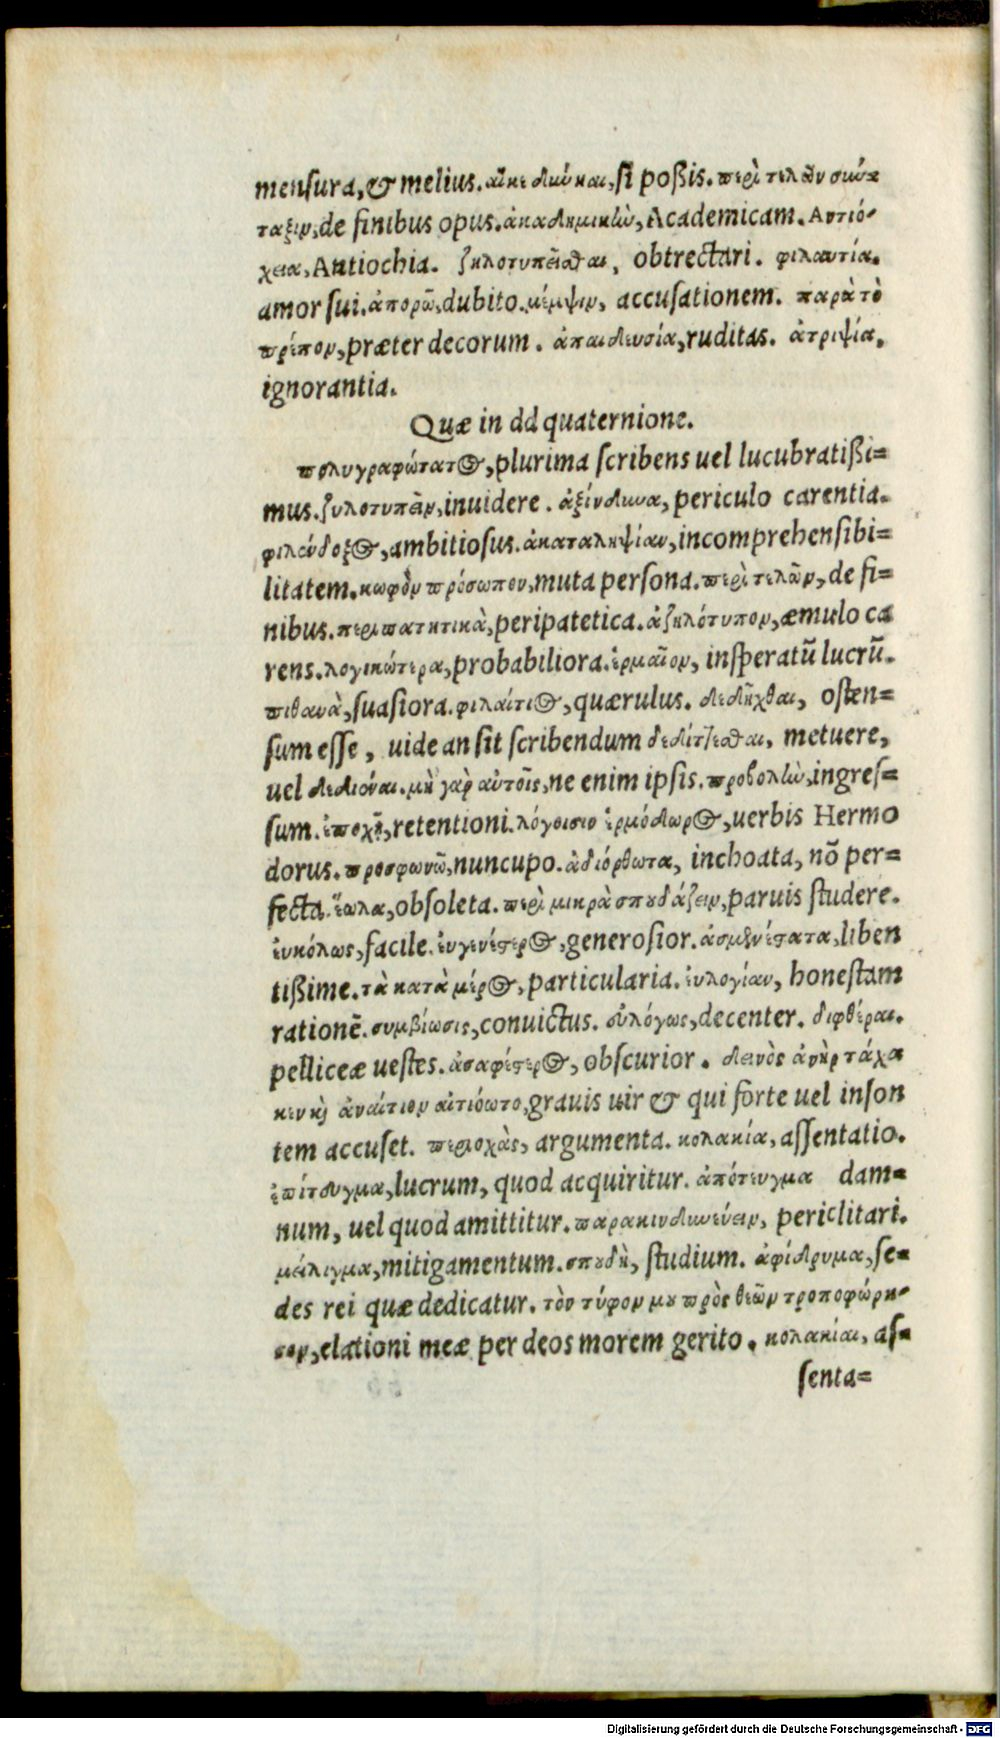 mensura, & melius. αἴκε δύνηαι, si poßis. περὶ τελῶν σύν=
ταξιν, de finibus opus. ἀκαδημικὴν, Academicam. Αντιό-
χεια, Antiochia. ζηλοτυπεῖσθαι, obtrectari. φιλαυτία.
amor sui. ἀπορῶ, dubito. μέμψιν, accusationem. παρὰ τὸ
πρέπον, præter decorum. ἀπαιδευσία, ruditas. ἀτριψία.
ignorantia.
Quæ in dd quaternione.
πολυγραφώτατος, plurima scribens uel lucubratißi=
mus. ζυλοτυπεῖν, inuidere. ἀξίνδυνα, periculo carentia.
φιλένδοξος, ambitiosus. ἀκαταληψίαν, incomprehensibi=
litatem. κωφὸν πρόσωπον, muta persona. περὶ τελῶν, de fi=
nibus. περιπατητικὰ, peripatetica. ἀζηλότυπον, æmulo ca
rens. λογικώτερα, probabiliora. ἑρμαῖον, insperatũ lucrũ.
πιθανὰ, suasiora. φιλαίτιος, quærulus. δεδῆχθαι, osten=
sum esse, uide an sit scribendum δεδίτζεσθαι, metuere,
uel δεδιέναι. μὴ γὰρ αὐτοῖς, ne enim ipsis. προβολὴν, ingres=
sum. ἐποχῇ, retentioni. λόγοισιν ἑρμόδωρος, uerbis Hermo
dorus. προσφωνῶ, nuncupo. ἀδιόρθωτα, inchoata, nõ per=
fecta. ἕωλα, obsoleta. περὶ μικρὰ σπουδάζειν, paruis studere.
ἐυκόλως, facile. ἐυγενέστερος, generosior. ἀσμενέστατα, liben
tißime. τὰ κατὰ μέρος, particularia. ἐυλογίαν, honestam
rationẽ. συμβίωσις, conuictus. εὐλόγως, decenter. διφθέραι.
pelliceæ uestes. ἀσαφέστερος, obscurior. δεινὸς ἀνὴρ τάχα
κεν καὶ ἀναίτιον αἰτιόωτο, grauis uir & qui forte uel inson
tem accuset. περιοχὰς, argumenta. κολακία, assentatio.
ἐπίτευγμα, lucrum, quod acquiritur. ἀπότευγμα dam=
num, uel quod amittitur. παρακινδυνεύειν, periclitari.
μείλιγμα, mitigamentum. σπουδὴ, studium. ἀφίδρυμα, se=
des rei quæ dedicatur. τὸν τύφον μου πρὸς θεῶν τροποφώρη-
σον, elationi meæ per deos morem gerito. κολακίαι, as=
senta=
Digitalisierung gefördert durch die Deutsche Forschungsgemeinschaft - DFG